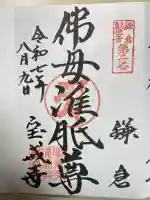 鎌倉
第二番
鎌倉
佛母准胝尊
令和七年
八月九日
宝戒寺